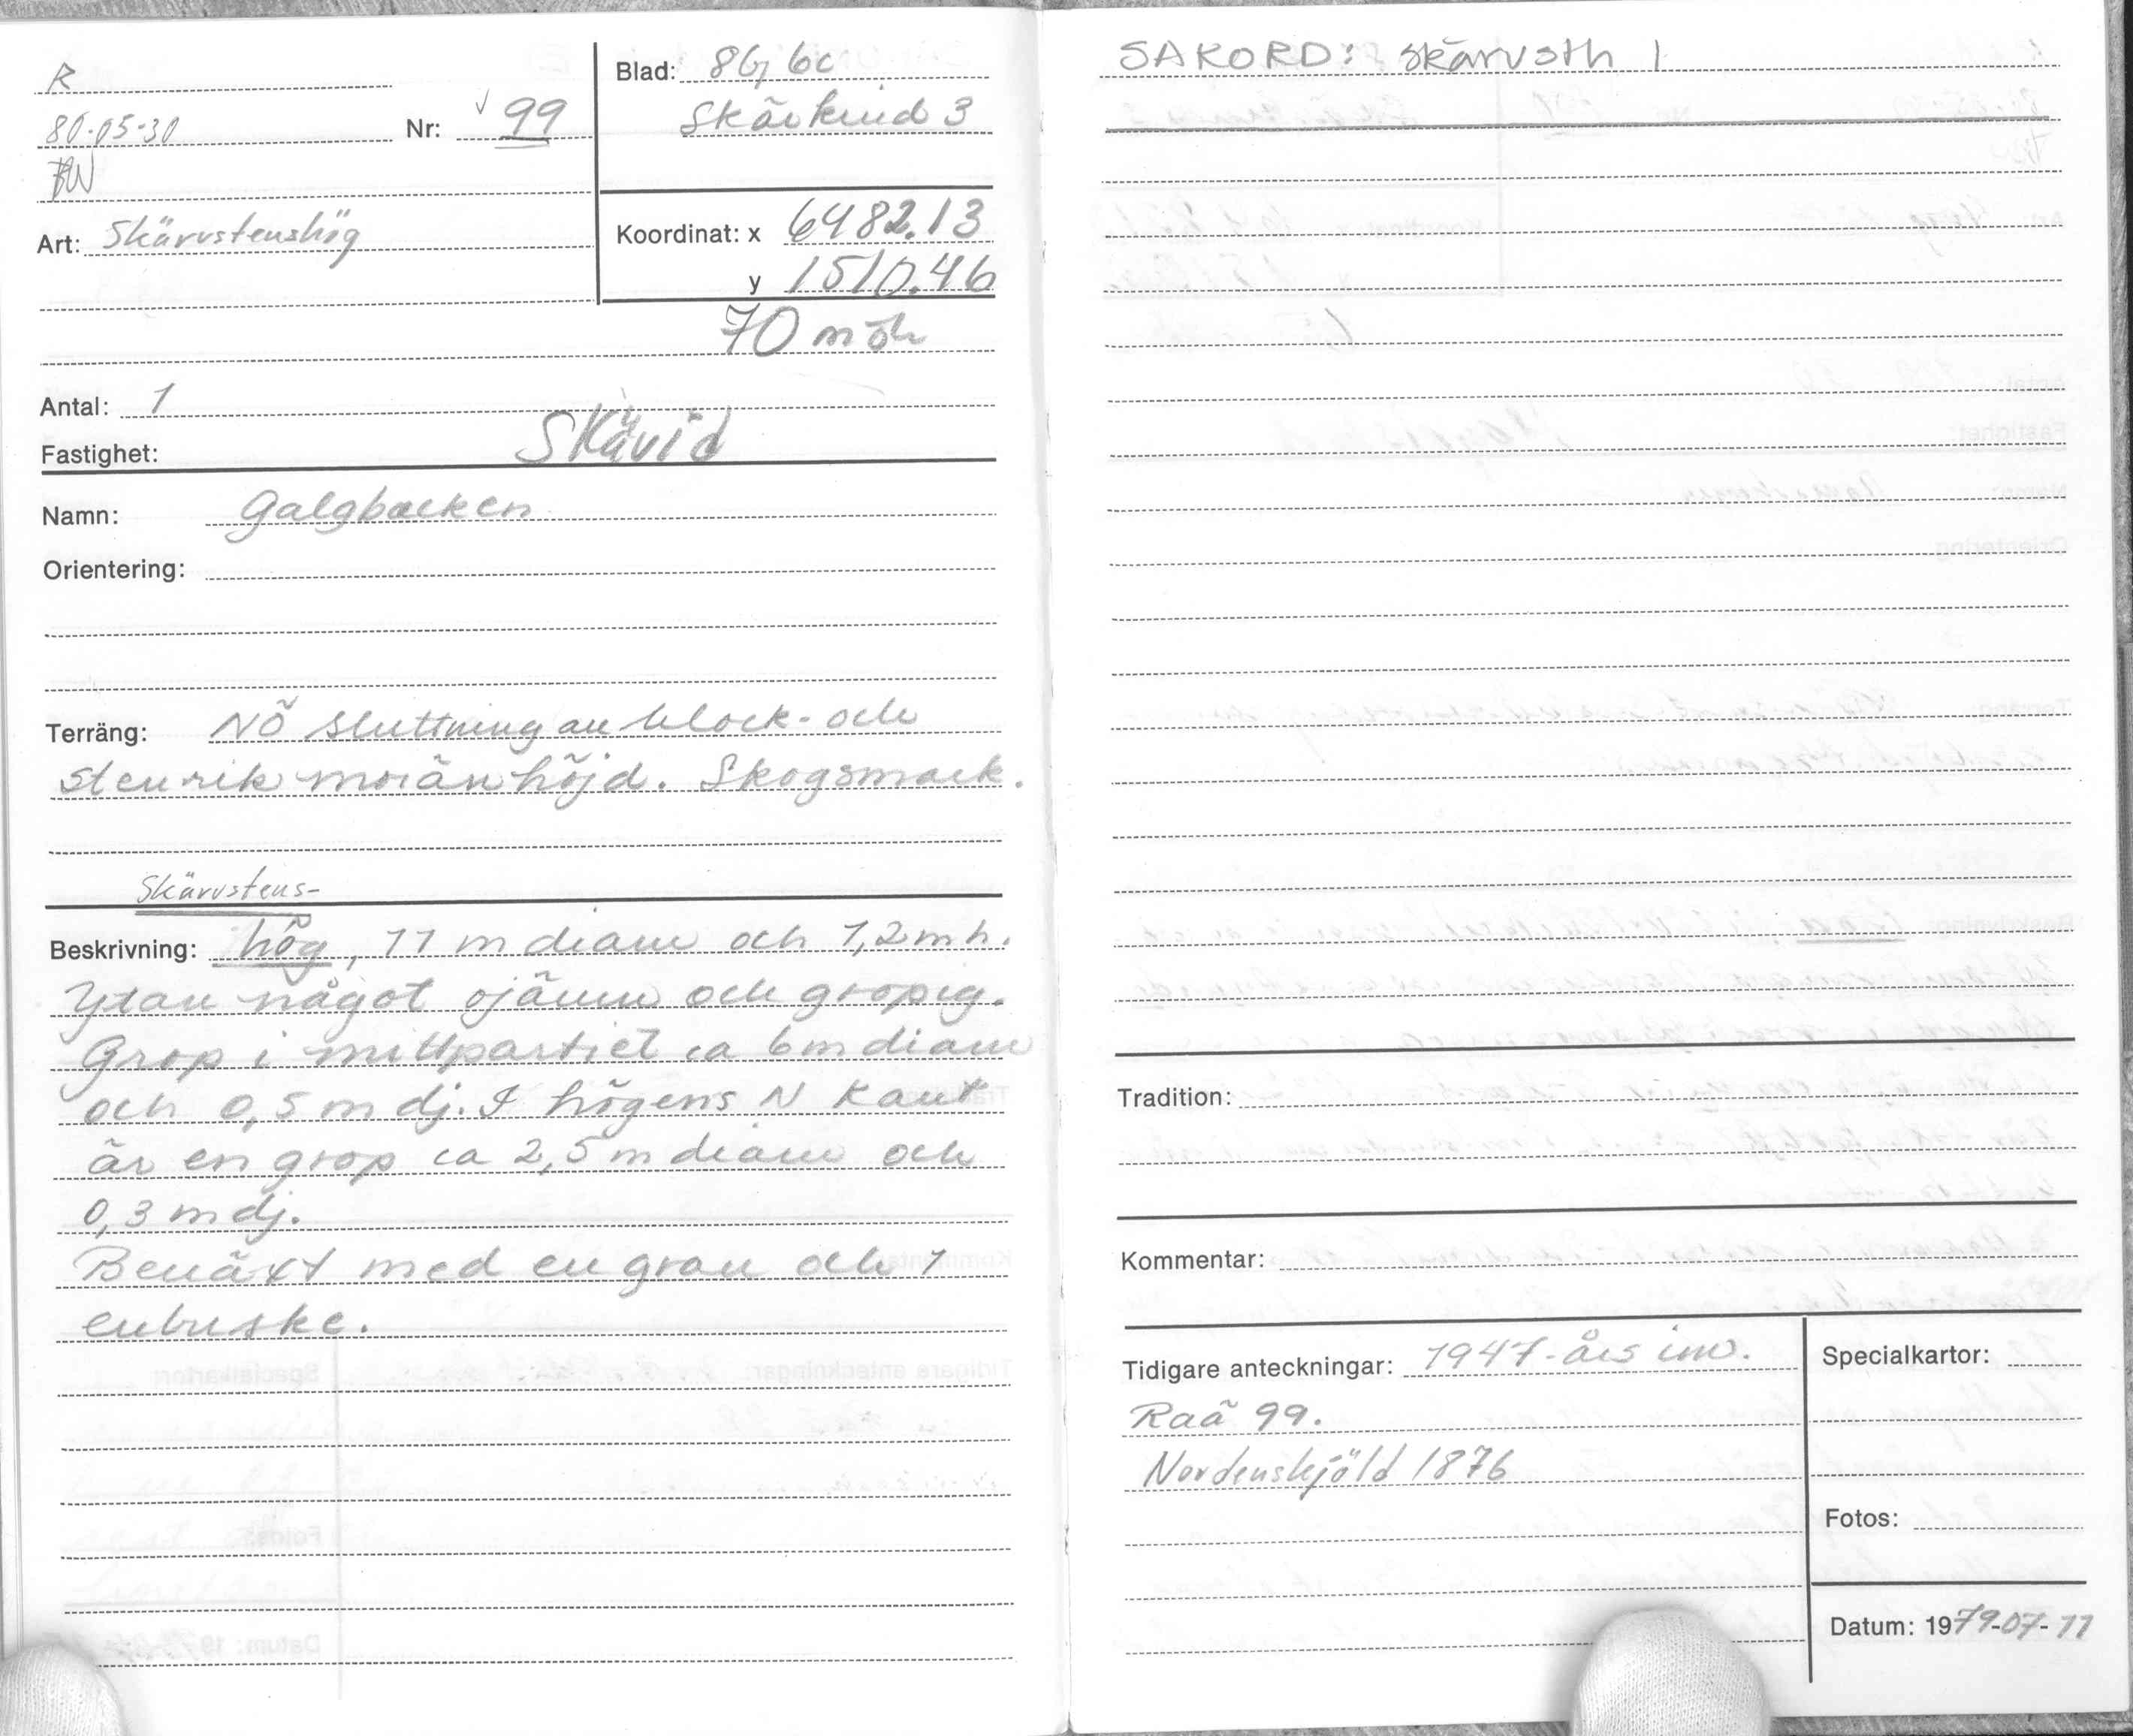 R
80-05-30 Nr: √ 99
Art: Skärvstenshög
Blad: 8G, 6c
Skärkind 3
Koordinat: x 6482.13
y 1510.46
70 möh
Antal: 1
Fastighet: Skävid
Namn: Galgbacken
Orientering:
Terräng: NÖ sluttning av block- och
stenrik moränhöjd. Skogsmark.
Skärvstens-
Beskrivning: hög, 11 m diam och 1,2 m h.
Ytan något ojämn och gropig.
Grop i mittpartiet ca 6 m diam
och 0,5 m dj. I högens N kant
är en grop ca 2,5 m diam och
0,3 m dj.
Beväxt med en gran och 1
enbuske.
SAKORD: skärvsth 1
Tradition:
Kommentar:
Tidigare anteckningar: 1947-års inv.
Raä 99.
Nordenskjöld 1876
Specialkartor:
Fotos:
Datum: 1979-07-11